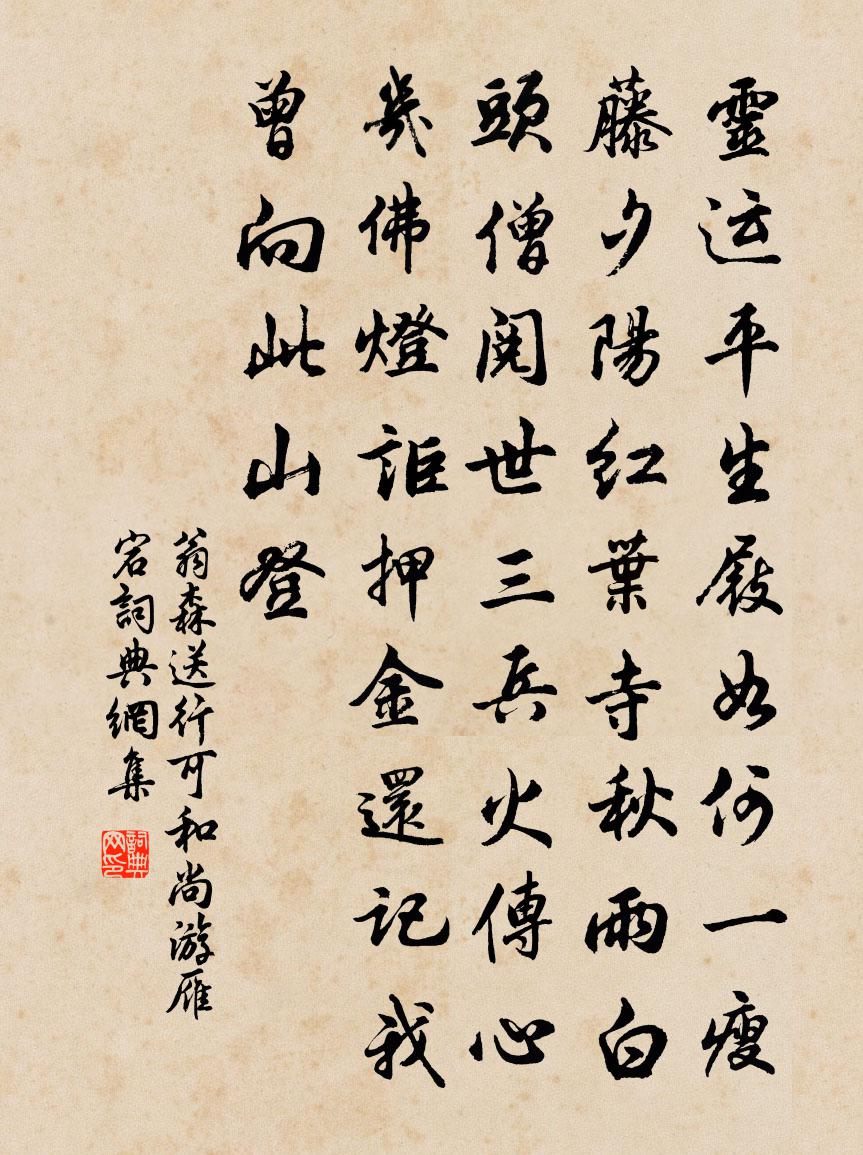 靈运平生屐如何一瘦
藤夕陽紅葉寺秋雨白
頭僧閱世三兵火傳心
幾佛燈詎押金還記我
曾向此山登
翁森送行可和尚游雁
岩詞典網集
詞典网印